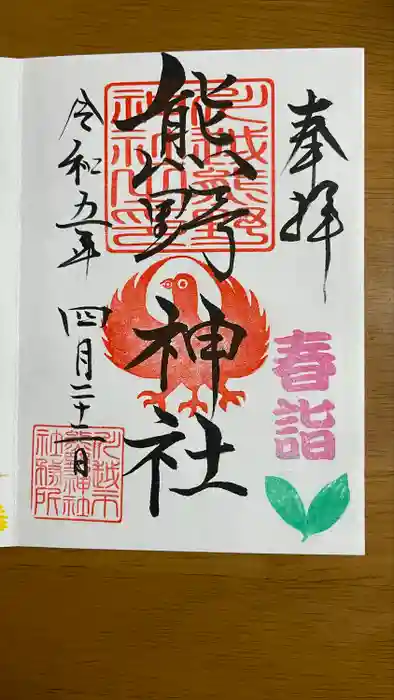 奉拝
春詣
熊野神社
川越熊野
神社之印
令和五年
四月二十二日
川越市
熊野神社
社務所